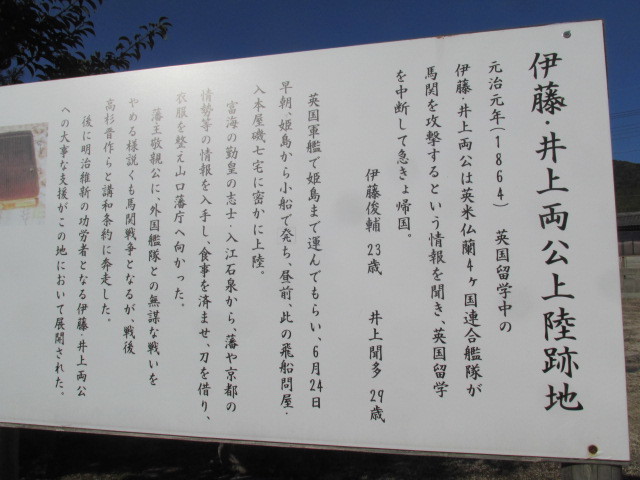 伊藤・井上両公上陸跡地
元治元年(1864) 英国留学中の
伊藤・井上両公は英米仏蘭4ヶ国連合艦隊が
馬関を攻撃するという情報を聞き、英国留学
を中断して急きょ帰国。
伊藤俊輔 23歳 井上聞多 29歳
英国軍艦で姫島まで運んでもらい、6月24日
早朝、姫島から小船で発ち、昼前、此の飛船問屋・
入本屋磯七宅に密かに上陸。
富海の勤皇の志士・入江石泉から、藩や京都の
情勢等の情報を入手し、食事を済ませ、刀を借り、
衣服を整え山口藩庁へ向かった。
藩主敬親公に、外国艦隊との無謀な戦いを
やめる様説くも馬関戦争となるが、戦後
高杉晋作らと講和条約に奔走した。
後に明治維新の功労者となる伊藤・井上両公
への大事な支援がこの地において展開された。